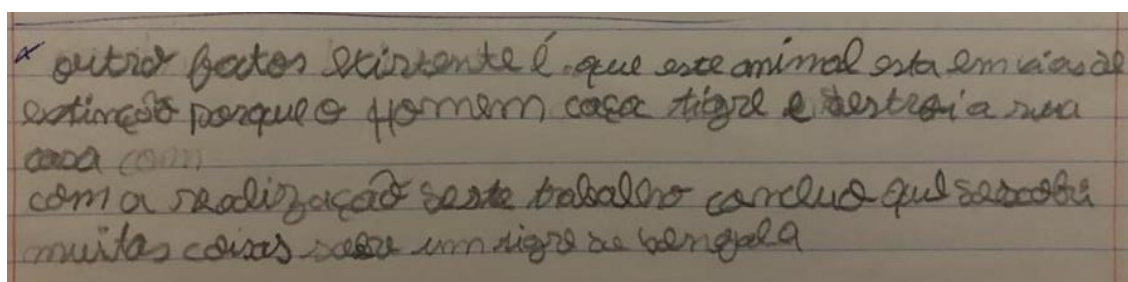 outro fator existente é que este animal esta em vias de
extinção porque o Homem caça tigre e destroi a sua
casa com
com a realização deste trabalho concluo que descobri
muitas coisas sobre um tigre de bengala